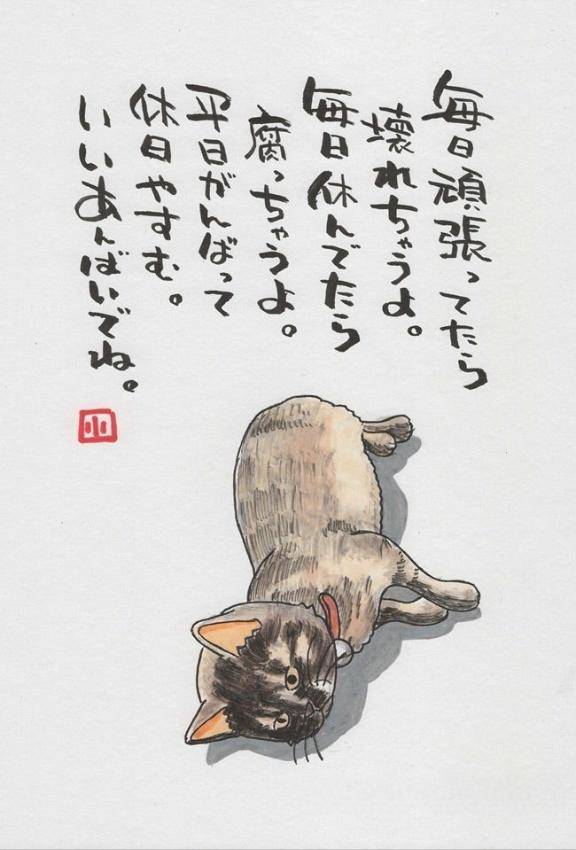 毎日頑張ってたら
壊れちゃうよ。
毎日休んでたら
腐っちゃうよ。
平日がんばって
休日やすむ。
いいあんばいでね。
小